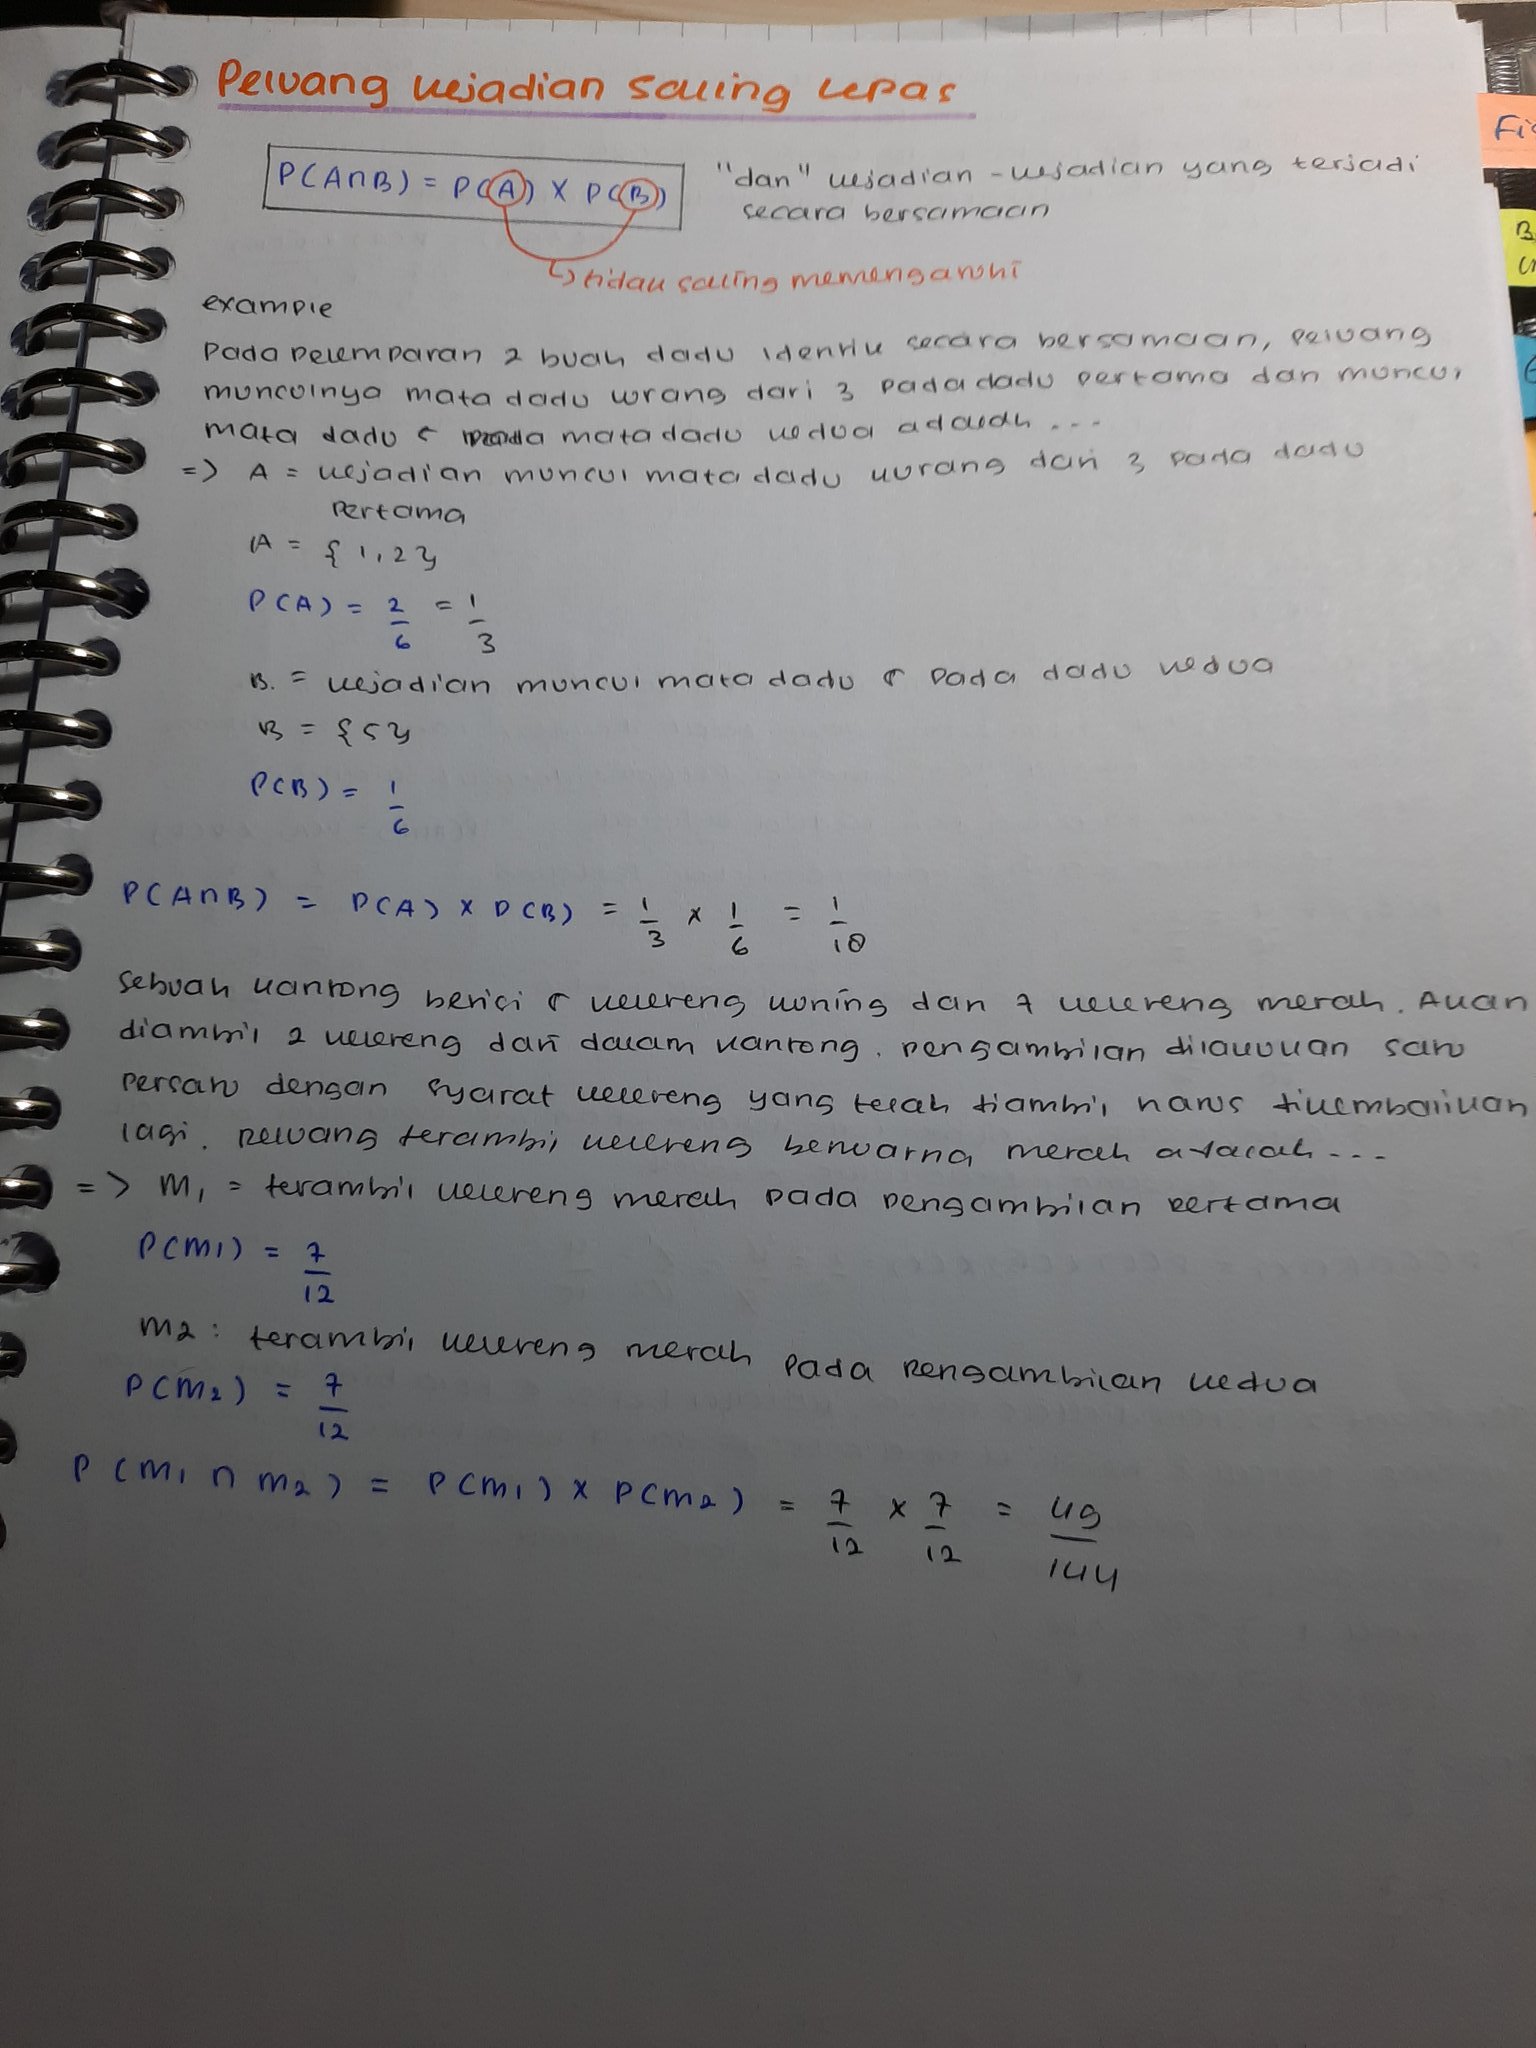 Peluang kejadian saling lepas
P(A∩B) = P(A) x P(B)
"dan" kejadian-kejadian yang terjadi
secara bersamaan
↳ tidak saling memengaruhi
example
Pada pelemparan 2 buah dadu identik secara bersamaan, peluang
munculnya mata dadu kurang dari 3 pada dadu pertama dan muncul
mata dadu 5 pada mata dadu kedua adalah ...
=> A = kejadian muncul mata dadu kurang dari 3 pada dadu
pertama
A = {1,2}
P(A) = 2/6 = 1/3
B = kejadian muncul mata dadu 5 pada dadu kedua
B = {5}
P(B) = 1/6
P(A∩B) = P(A) x P(B) = 1/3 x 1/6 = 1/18
Sebuah kantong berisi 5 kelereng kuning dan 7 kelereng merah. Akan
diambil 2 kelereng dari dalam kantong. Pengambilan dilakukan satu
persatu dengan syarat kelereng yang telah diambil harus dikembalikan
lagi. Peluang terambil kelereng berwarna merah adalah ...
=> M1 = terambil kelereng merah pada pengambilan pertama
P(M1) = 7/12
M2 : terambil kelereng merah pada pengambilan kedua
P(M2) = 7/12
P(M1 ∩ M2) = P(M1) x P(M2) = 7/12 x 7/12 = 49/144